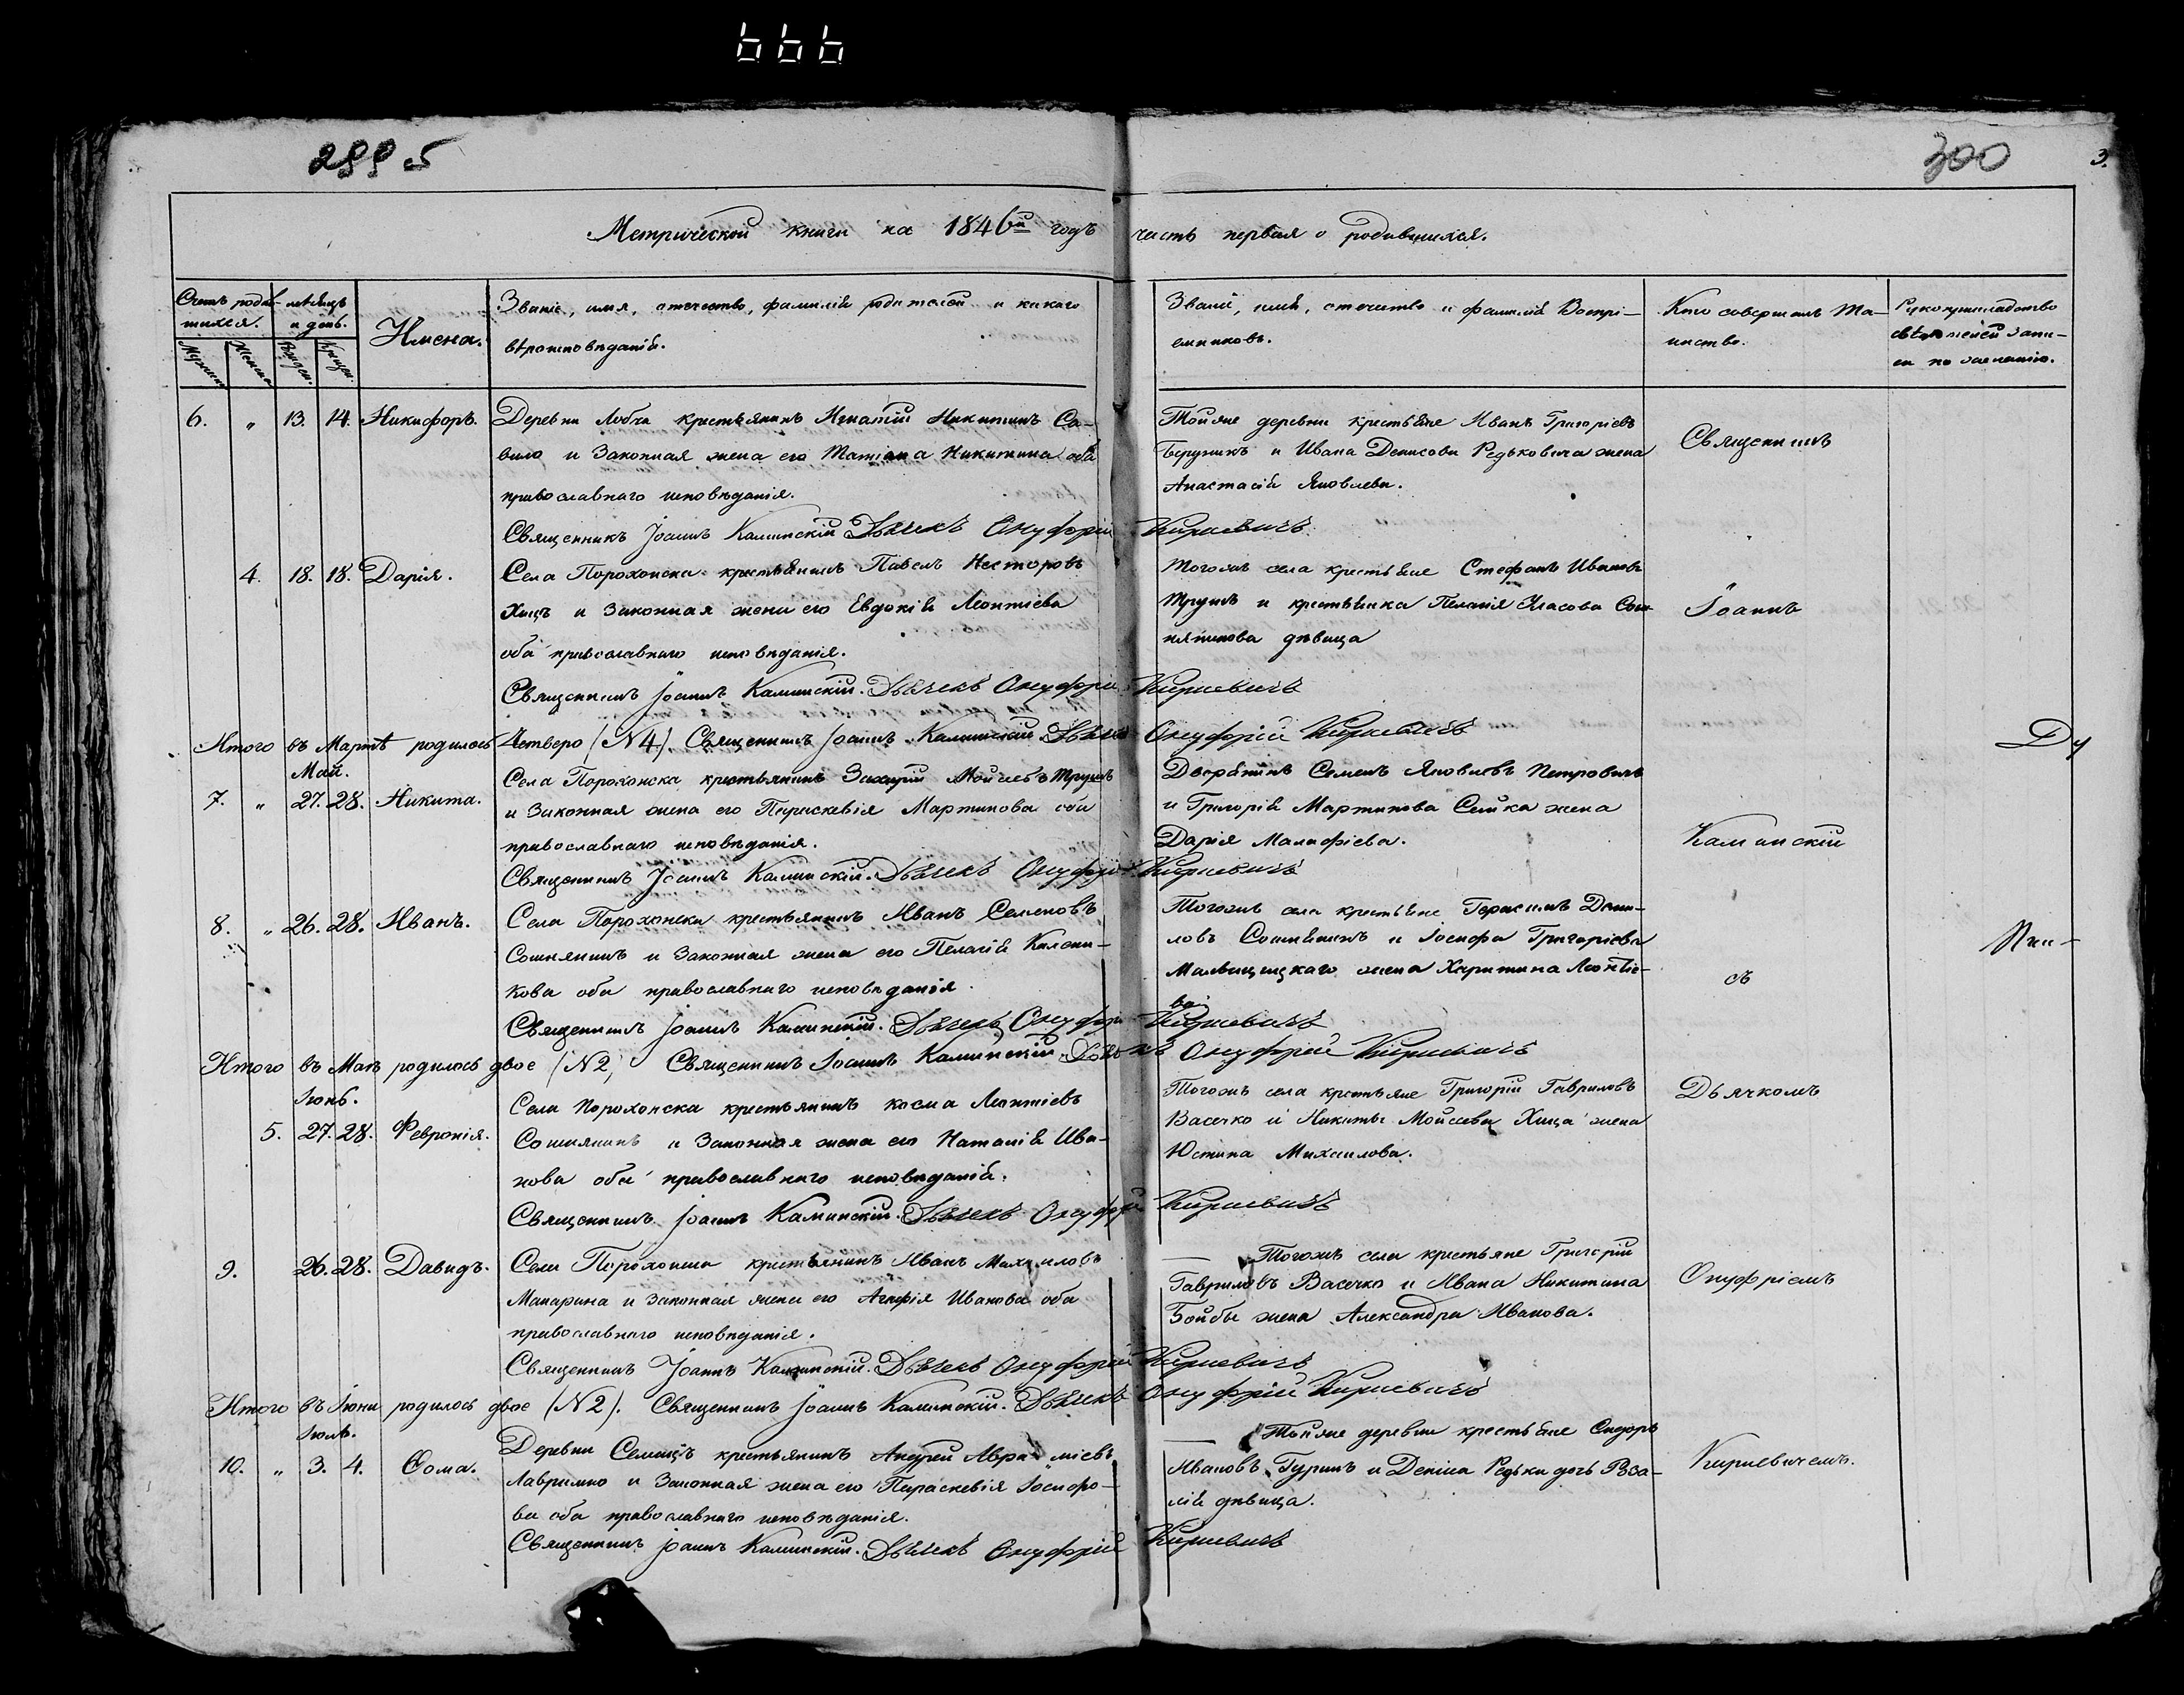 666
299 об
300
3.
Метрической книги на 1846й годъ часть первая о родившихся.
Счетъ родив-
шихся.
Мужеска
Женска
мѣсяцъ
и день.
Рожден.
Крещен.
Имена.
Званіе, имя, отечество, фамилія родителей и какаго
вѣроисповѣданія.
Званіе, имя, отечество и фамилія Воспрі-
емниковъ.
Кто совершалъ Та-
инство.
Рукоприкладство
свѣдетелей запи-
си по желанію.
6. „ 13. 14. Никифоръ.
Деревни Лобча крестьянинъ Игнатій Никитинъ Са-
вило и Законная жена его Татіана Никитина оба
православнаго исповѣданія.
Священникъ Іоаннъ Каминскій Дьячекъ Онуфрій Кирисевичъ
Тойже деревни крестьяне Иванъ Григоріевъ
и Ивана Денисова Редьковича жена
Анастасія Яковлева.
Священникъ
4. 18. 18. Дарія.
Села Порохонска крестьянинъ Павелъ Несторовъ
Хицъ и Законная жена его Евдокія Леонтіева
оба православнаго исповѣданія.
Священникъ Іоаннъ Каминскій. Дьячекъ Онуфрій Кирисевичъ
Тогожъ села крестьяне Стефанъ Ивановъ
Трушъ и крестьянка Пелагія Власова Сош-
нянинова дѣвица
Іоаннъ
Итого въ Мартѣ родилось Четверо (N 4). Священникъ Іоаннъ Каминскій Дьячекъ Онуфрій Кирисевичъ
Ду
Май.
7. „ 27. 28. Никита.
Села Порохонска крестьянинъ Захарій Мойсеевъ Трушъ
и Законная жена его Параскевія Мартинова оба
православнаго исповѣданія.
Священникъ Іоаннъ Каминскій. Дьячекъ Онуфрій Кирисевичъ
Дворянинъ Семенъ Яковлевъ Петровичъ
и Григорія Мартинова Сешка жена
Дарія Малафіева.
Каминскій
8. „ 26. 28. Иванъ.
Села Порохонска крестьянинъ Иванъ Семеновъ
Сошнянинъ и Законная жена его Пелагія Калени-
кова оба православнаго исповѣданія.
Священникъ Іоаннъ Каминскій. Дьячекъ Онуфрій Кирисевичъ
Тогожъ села крестьяне Герасимъ Дани-
ловъ Сошнянинъ и Іосифа Григоріева
жена Харитина Леонтіе-
ва.
съ
Итого въ Маѣ родилось двое (N 2) Священникъ Іоаннъ Каминскій. Дьячекъ Онуфрій Кирисевичъ
Іюнь.
5. 27. 28. Февронія.
Села Порохонска крестьянинъ Косма Леонтіевъ
Сошнянинъ и Законная жена его Наталія Ива-
нова оба православнаго исповѣданія.
Священникъ Іоаннъ Каминскій. Дьячекъ Онуфрій Кирисевичъ
Тогожъ села крестьяне Григорій Гавриловъ
Васечко и Никиты Мойсеева Хица жена
Юстина Михаилова.
Дьячкомъ
9. 26. 28. Давидъ.
Села Порохонска крестьянинъ Иванъ Михаиловъ
Макарина и Законная жена его Агафія Иванова оба
православнаго исповѣданія.
Священникъ Іоаннъ Каминскій. Дьячекъ Онуфрій Кирисевичъ
Тогожъ села крестьяне Григорій
Гавриловъ Васечко и Ивана Никитина
Бойбы жена Александра Иванова.
Онуфріемъ
Итого въ Іюнѣ родилось двое (N 2). Священникъ Іоаннъ Каминскій. Дьячекъ Онуфрій Кирисевичъ
Іюль.
10. „ 3. 4. Ѳома.
Деревни Семицъ крестьянинъ Андрей Авраміевъ
Лаврило и Законная жена его Параскевія Іосифо-
ва оба православнаго исповѣданія.
Священникъ Іоаннъ Каминскій. Дьячекъ Онуфрій Кирисевичъ
Тойже деревни крестьяне Сидоръ
Ивановъ Гуринъ и Дениса Редьки дочь Роза-
лія дѣвица.
Кирисевичемъ.